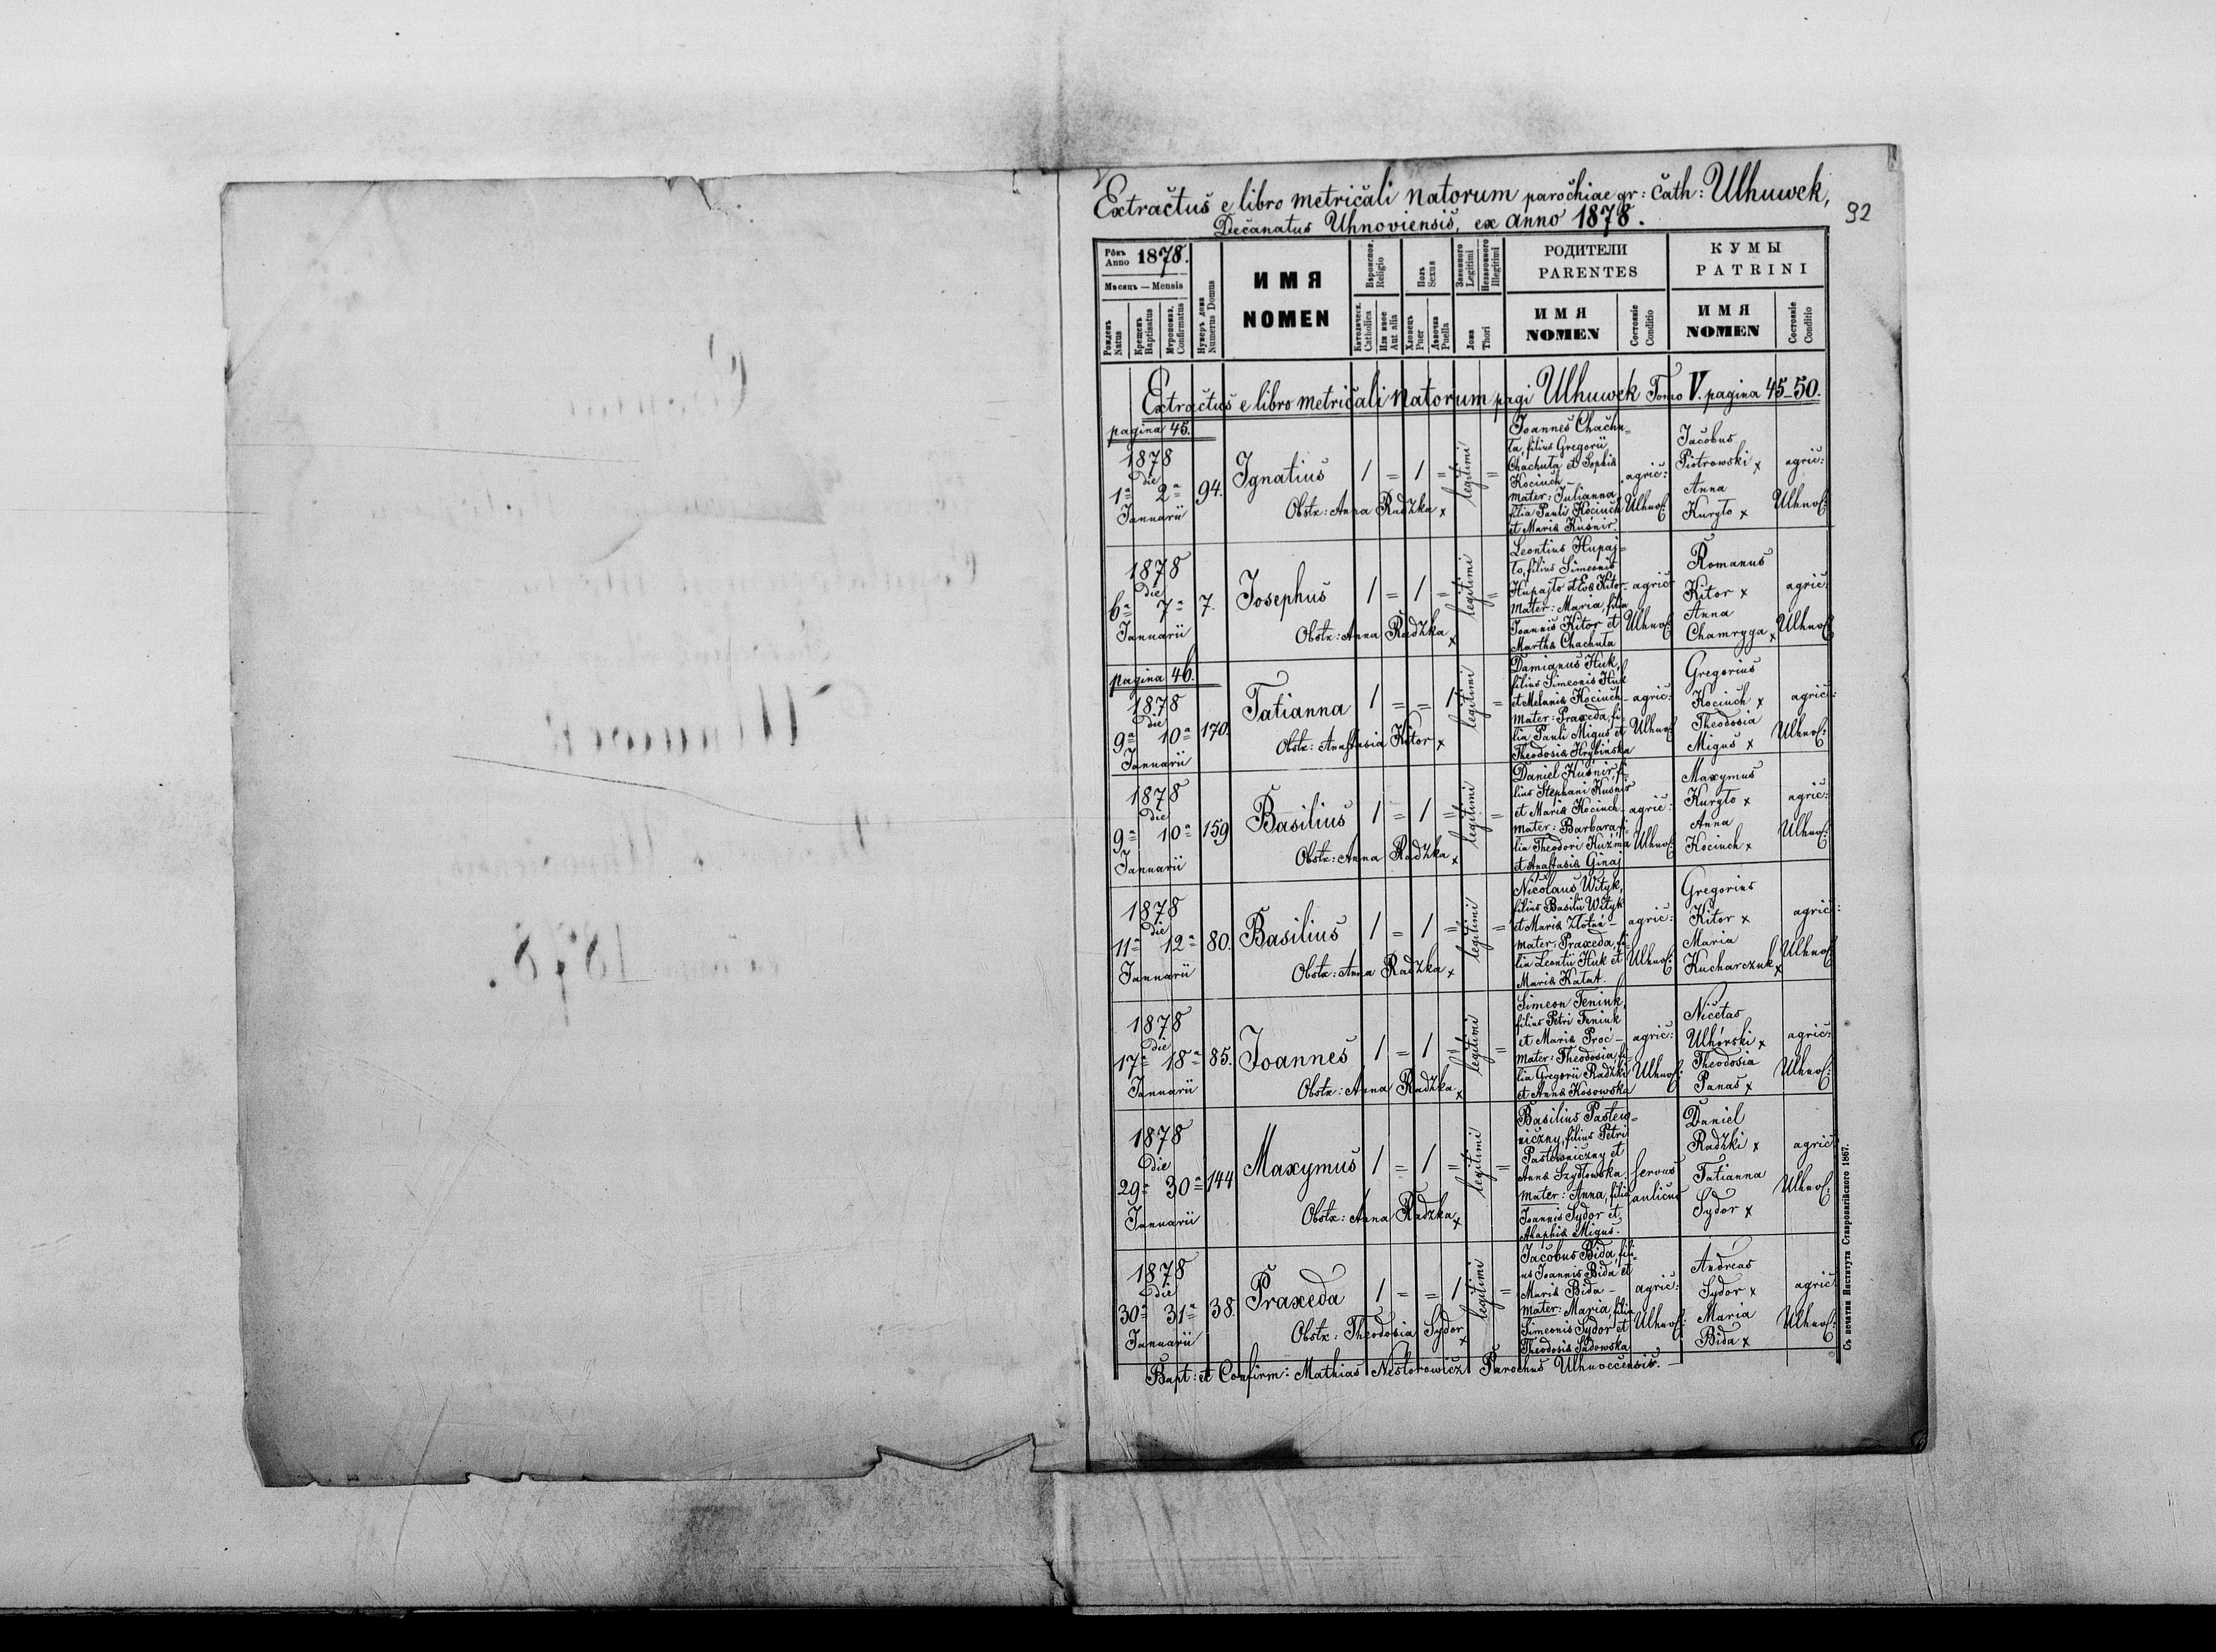 Extractus e libro metricali Natorum parochiae gr: Cath: Ulhuwek,
Decanatus Uhnoviensis, ex anno 1878.
92
Рôкъ Anno 1878.
Мѣсяцъ — Mensis
Рожденъ Natus
Крещенъ Baptisatus
Мѵропомаз. Confirmatus
Нумеръ дома Numerus Domus
ИМЯ
NOMEN
Вѣроиспов. Religio
Католическ. Catholica
Или иное Aut alia
Полъ Sexus
Хлопецъ Puer
Дѣвочка Puella
Законного Legitimi
Незаконного Illegitimi
Ложа Thori
РОДИТЕЛИ
PARENTES
ИМЯ
NOMEN
Состояніе Conditio
КУМЫ
PATRINI
ИМЯ
NOMEN
Состояніе Conditio
Extractus e libro metricali Natorum pagi Ulhuwek Tomo V. pagina 45-50.
pagina 45.
1878
die
1ª 2ª
Januarii
94.
Ignatius
Obstx: Anna Radzka x
1 = 1 =
legitimi =
Joannes Chachu=
ta, filius Gregorii
Chachuta et Sophia
Kociuch –
mater: Julianna
filia Pauli Kociuch
et Maria Kuśnir.
agric:
Ulhuv:
Jacobus
Piotrowski x
Anna
Kuryło x
agric:
Ulhuv:
1878
die
6ª 7ª
Januarii
7.
Josephus
Obstx: Anna Radzka x
1 = 1 =
legitimi =
Leontius Hupaj=
ło, filius Simeonis
Hupajło et Eva Kitor
mater: Maria, filia
Joannis Kitor et
Martha Chachuta
agric:
Ulhuv:
Romanus
Kitor x
Anna
Chamryga x
agric:
Ulhuv:
pagina 46.
1878
die
9ª 10ª
Januarii
170.
Tatianna
Obstx: Anastasia Kitor x
1 = = 1
legitimi =
Damianus Huk,
filius Simeonis Huk
et Melania Kociuch
mater: Praxeda, fi=
lia Pauli Migus et
Theodosia Hrybińska
agric:
Ulhuv:
Gregorius
Kociuch x
Theodosia
Migus x
agric:
Ulhuv:
1878
die
9ª 10ª
Januarii
159
Basilius
Obstx: Anna Radzka x
1 = 1 =
legitimi =
Daniel Kuśnir, fi=
lius Stephani Kuśnir
et Maria Kociuch
mater: Barbara, fi=
lia Theodori Kuźma
et Anastasia Ginaj
agric:
Ulhuv:
Maxymus
Kuryło x
Anna
Kociuch x
agric:
Ulhuv:
1878
die
11ª 12ª
Januarii
80.
Basilius
Obstx: Anna Radzka x
1 = 1 =
legitimi =
Nicolaus Wityk,
filius Basilii Wityk
et Maria Złotań –
mater: Praxeda, fi=
lia Leontii Huk et
Maria Kałat.
agric:
Ulhuv:
Gregorius
Kitor x
Maria
Kucharczuk x
agric:
Ulhuv:
1878
die
17ª 18ª
Januarii
85.
Joannes
Obstx: Anna Radzka x
1 = 1 =
legitimi =
Simeon Feniuk,
filius Petri Feniuk
et Maria Proć –
mater: Theodosia, fi=
lia Gregorii Radzki
et Anna Kosowska
agric:
Ulhuv:
Nicetas
Ulhórski x
Theodosia
Panas x
agric:
Ulhuv:
1878
die
29ª 30ª
Januarii
144
Maxymus
Obstx: Anna Radzka x
1 = 1 =
legitimi =
Basilius Pastew=
niczny, filius Petri
Pastewniczny et
Anna Szydłowska
mater: Anna, filia
Joannis Sydor et
Ahaphia Migus.
servus
aulicus
Daniel
Radzki x
Tatianna
Sydor x
agric:
Ulhuv:
1878
die
30ª 31ª
Januarii
38.
Praxeda
Obstx: Theodosia Sydor x
1 = = 1
legitimi =
Jacobus Bida, fili=
us Joannis Bida et
Maria Bida –
mater: Maria, filia
Simeonis Sydor et
Theodosia Sadowska
agric:
Ulhuv:
Andreas
Sydor x
Maria
Bida x
agric:
Ulhuv:
Bapt: et Confirm: Mathias Nestorowicz Parochus Ulhuvecensis. –
Съ печатни Института Ставропигійского 1867.